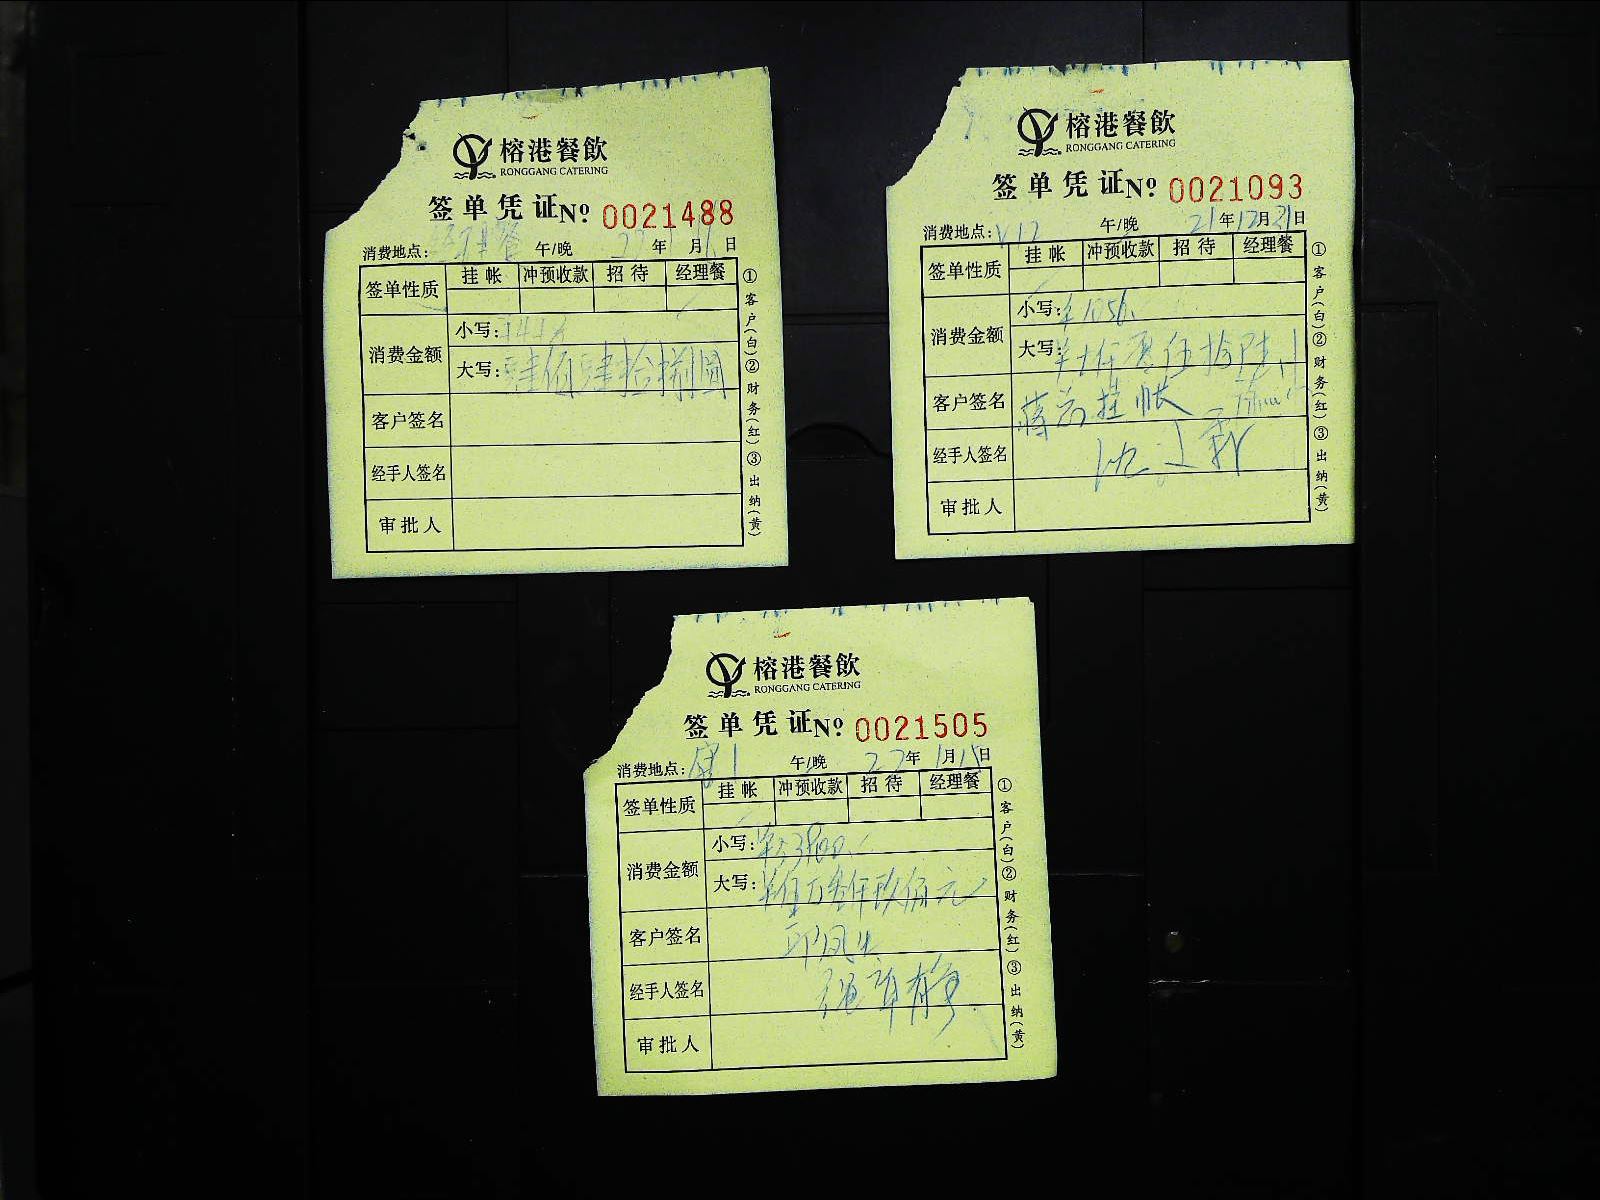 榕港餐飲
RONGGANG CATERING
签单凭证 Nº 0021488
消费地点: 经理餐 午/晚 22年 月 日
签单性质 挂帐 冲预收款 招待 经理餐
消费金额
小写:
大写: 肆佰肆拾捌圆
客户签名
经手人签名
审批人
①客户(白)②财务(红)③出纳(黄)
榕港餐飲
RONGGANG CATERING
签单凭证 Nº 0021093
消费地点: V12 午/晚 21年12月31日
签单性质 挂帐 冲预收款 招待 经理餐
消费金额
小写: ¥1056.
大写: ¥壹仟零伍拾陆
客户签名 挂帐
经手人签名
审批人
①客户(白)②财务(红)③出纳(黄)
榕港餐飲
RONGGANG CATERING
签单凭证 Nº 0021505
消费地点: 宴1 午/晚 22年1月15日
签单性质 挂帐 冲预收款 招待 经理餐
消费金额
小写: ¥53900.
大写: ¥伍万叁仟玖佰元
客户签名
经手人签名
审批人
①客户(白)②财务(红)③出纳(黄)